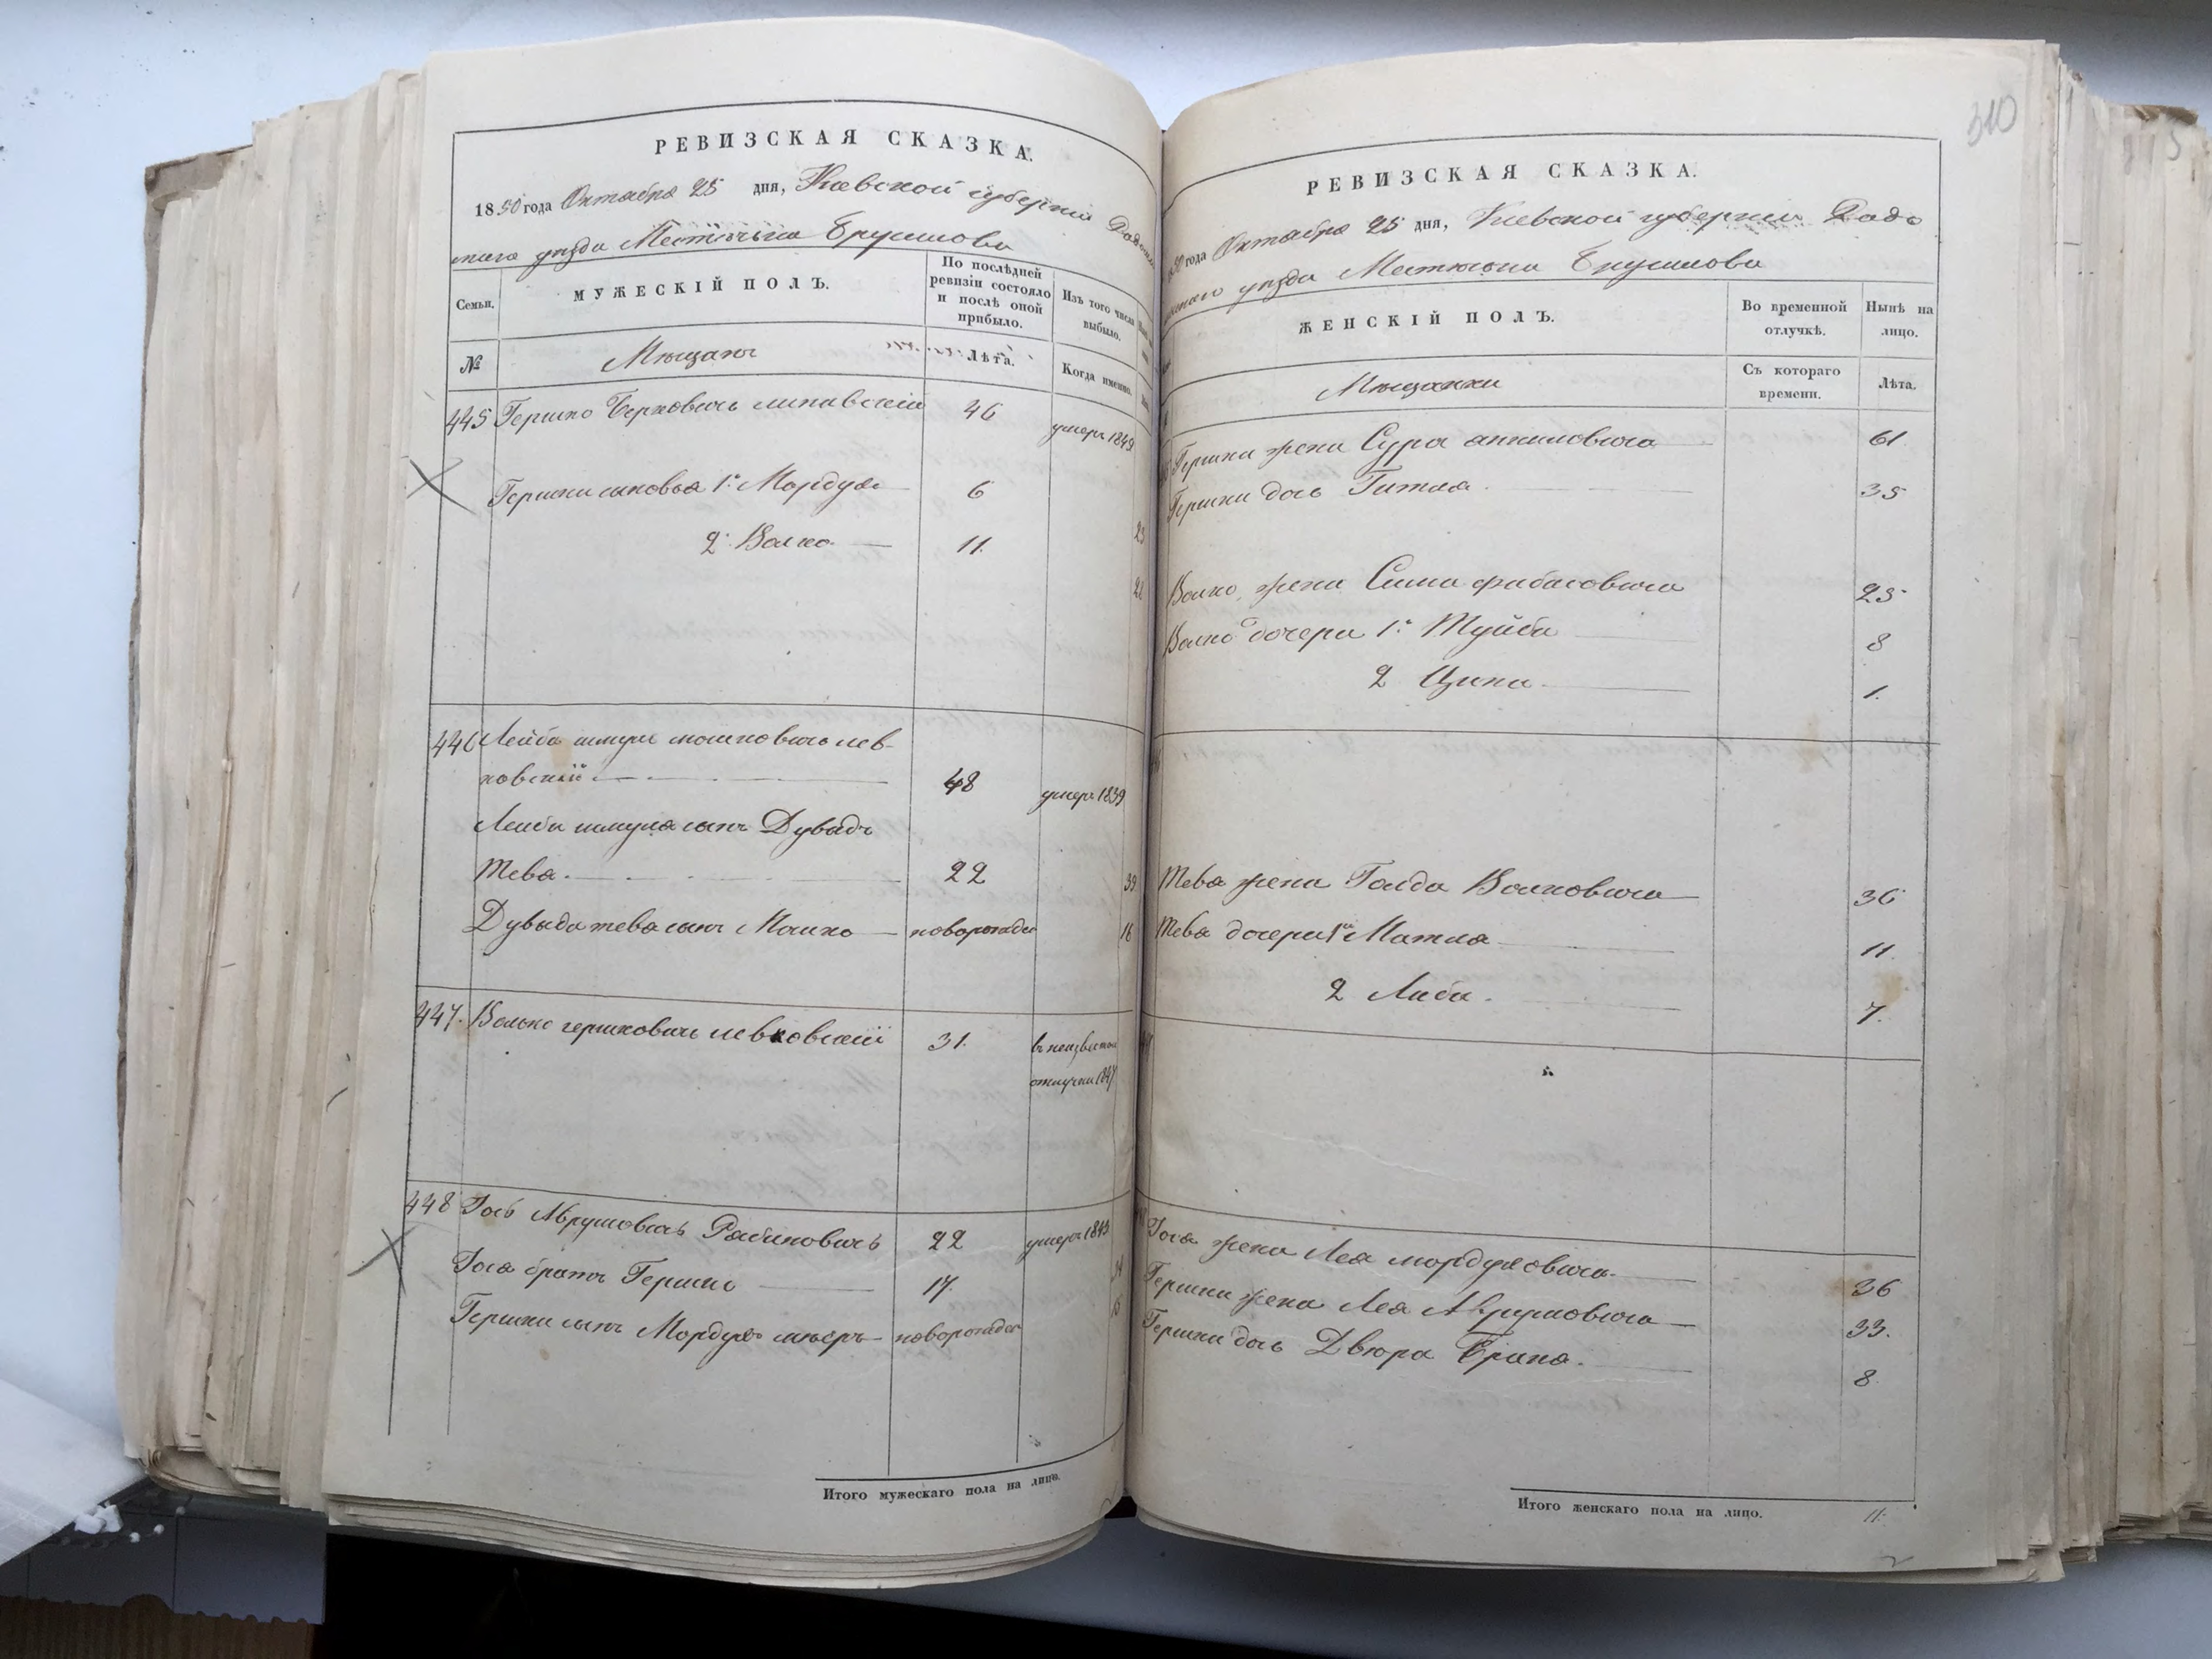 РЕВИЗСКАЯ СКАЗКА.
1850 года Октября 25 дня, Киевской губернии Радомысль
скаго уѣзда Местечка Брусилова
Семьи.
МУЖЕСКІЙ ПОЛЪ.
По послѣдней ревизіи состояло и послѣ оной прибыло.
Изъ того числа выбыло.
№
Мѣщанъ
Лѣта.
Когда именно.
445 Гершко Берковичь липавскій 46 умеръ 1849
Гершки сыновья 1й Мордухъ 6 23
2й Волко 11. 2
446 Лейба шмуль мошковичь лев-
ковскій 48 умеръ 1839
Лейбы шмуля сынъ Дувидъ
Тевя 22 39
Дувида тевя сынъ Мошко новорожден 16
447. Волько гершковичь левковскій 31. въ неизвестной
отлучки 1847
448 Гось Аврумовичь Рабиновичь 22 умеръ 1843
Гося братъ Гершко 17. 34
Гершки сынъ Мордухъ мееръ новорожден
Итого мужескаго пола на лицо.
310
РЕВИЗСКАЯ СКАЗКА.
1850 года Октября 25 дня, Киевской губернии Радо
мысльскаго уѣзда Местечка Брусилова
ЖЕНСКІЙ ПОЛЪ.
Во временной отлучкѣ.
Нынѣ на лицо.
Мѣщанки
Съ котораго времени.
Лѣта.
Гершки жена Сура 61
Гершки дочь Гитля 35
Волко жена Сима 25
Волко дочери 1я Туйба 8
2 Ципа 1.
Тевя жена Голда Волковича 36
Тевя дочери 1я Матля 11.
2 Либа 7.
Гося жена Лея мордуховича 36
Гершки жена Лея Аврумовича 33.
Гершки дочь Двюра Брана. 8.
Итого женскаго пола на лицо. 11.